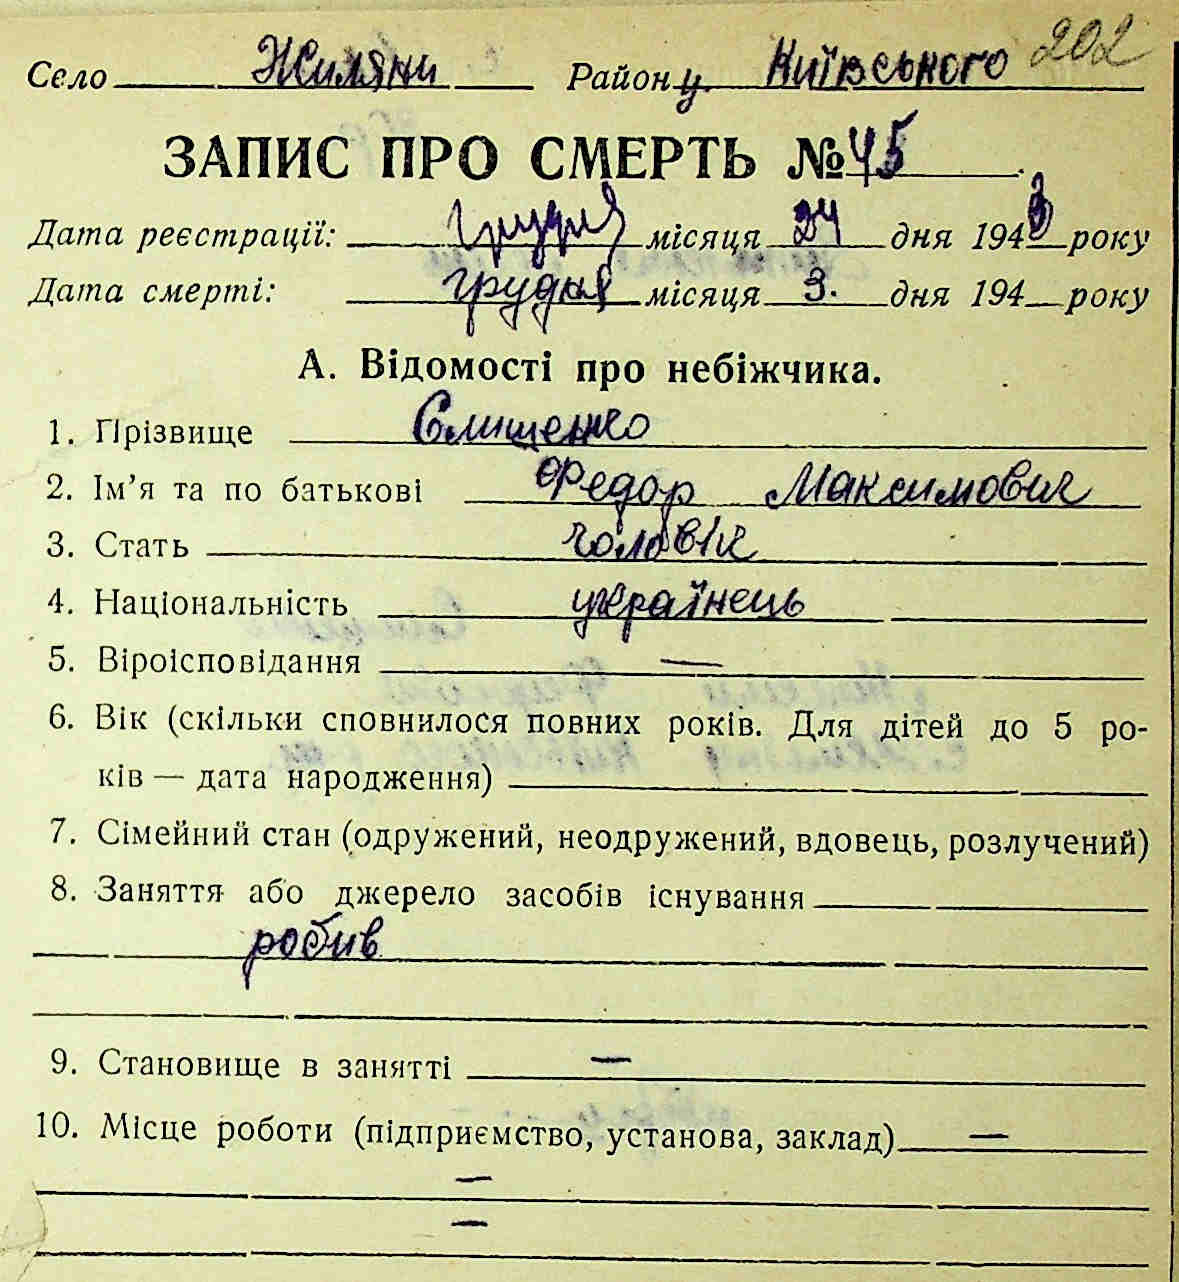 Село Жиляни Району Київського 202
ЗАПИС ПРО СМЕРТЬ № 45
Дата реєстрації: грудня місяця 24 дня 1943 року
Дата смерті: грудня місяця 3. дня 194 року
А. Відомості про небіжчика.
1. Прізвище Єлишенко
2. Ім'я та по батькові Федор Максимович
3. Стать чоловік
4. Національність українець
5. Віроісповідання —
6. Вік (скільки сповнилося повних років. Для дітей до 5 ро-
ків — дата народження)
7. Сімейний стан (одружений, неодружений, вдовець, розлучений)
8. Заняття або джерело засобів існування
робив
9. Становище в занятті —
10. Місце роботи (підприємство, установа, заклад) —
—
—